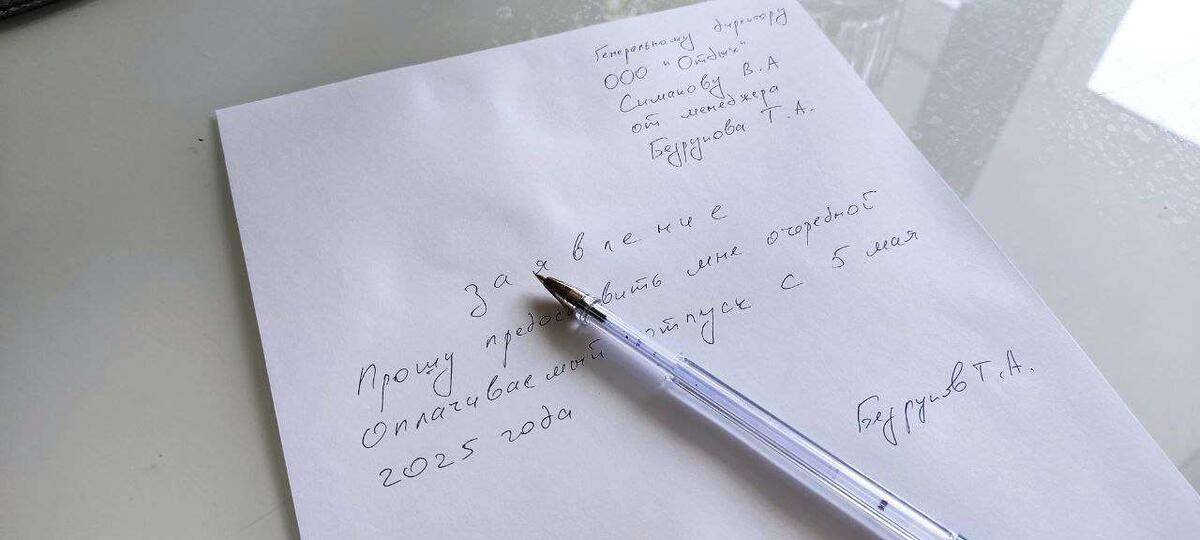 Генеральному директору
ООО "Отдых"
Симакову В.А
от менеджера
Безрукова Т.А.
заявление
Прошу предоставить мне очередной
оплачиваемый отпуск с 5 мая
2025 года
Безруков Т.А.